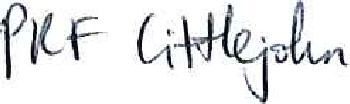 PRF Littlejohn